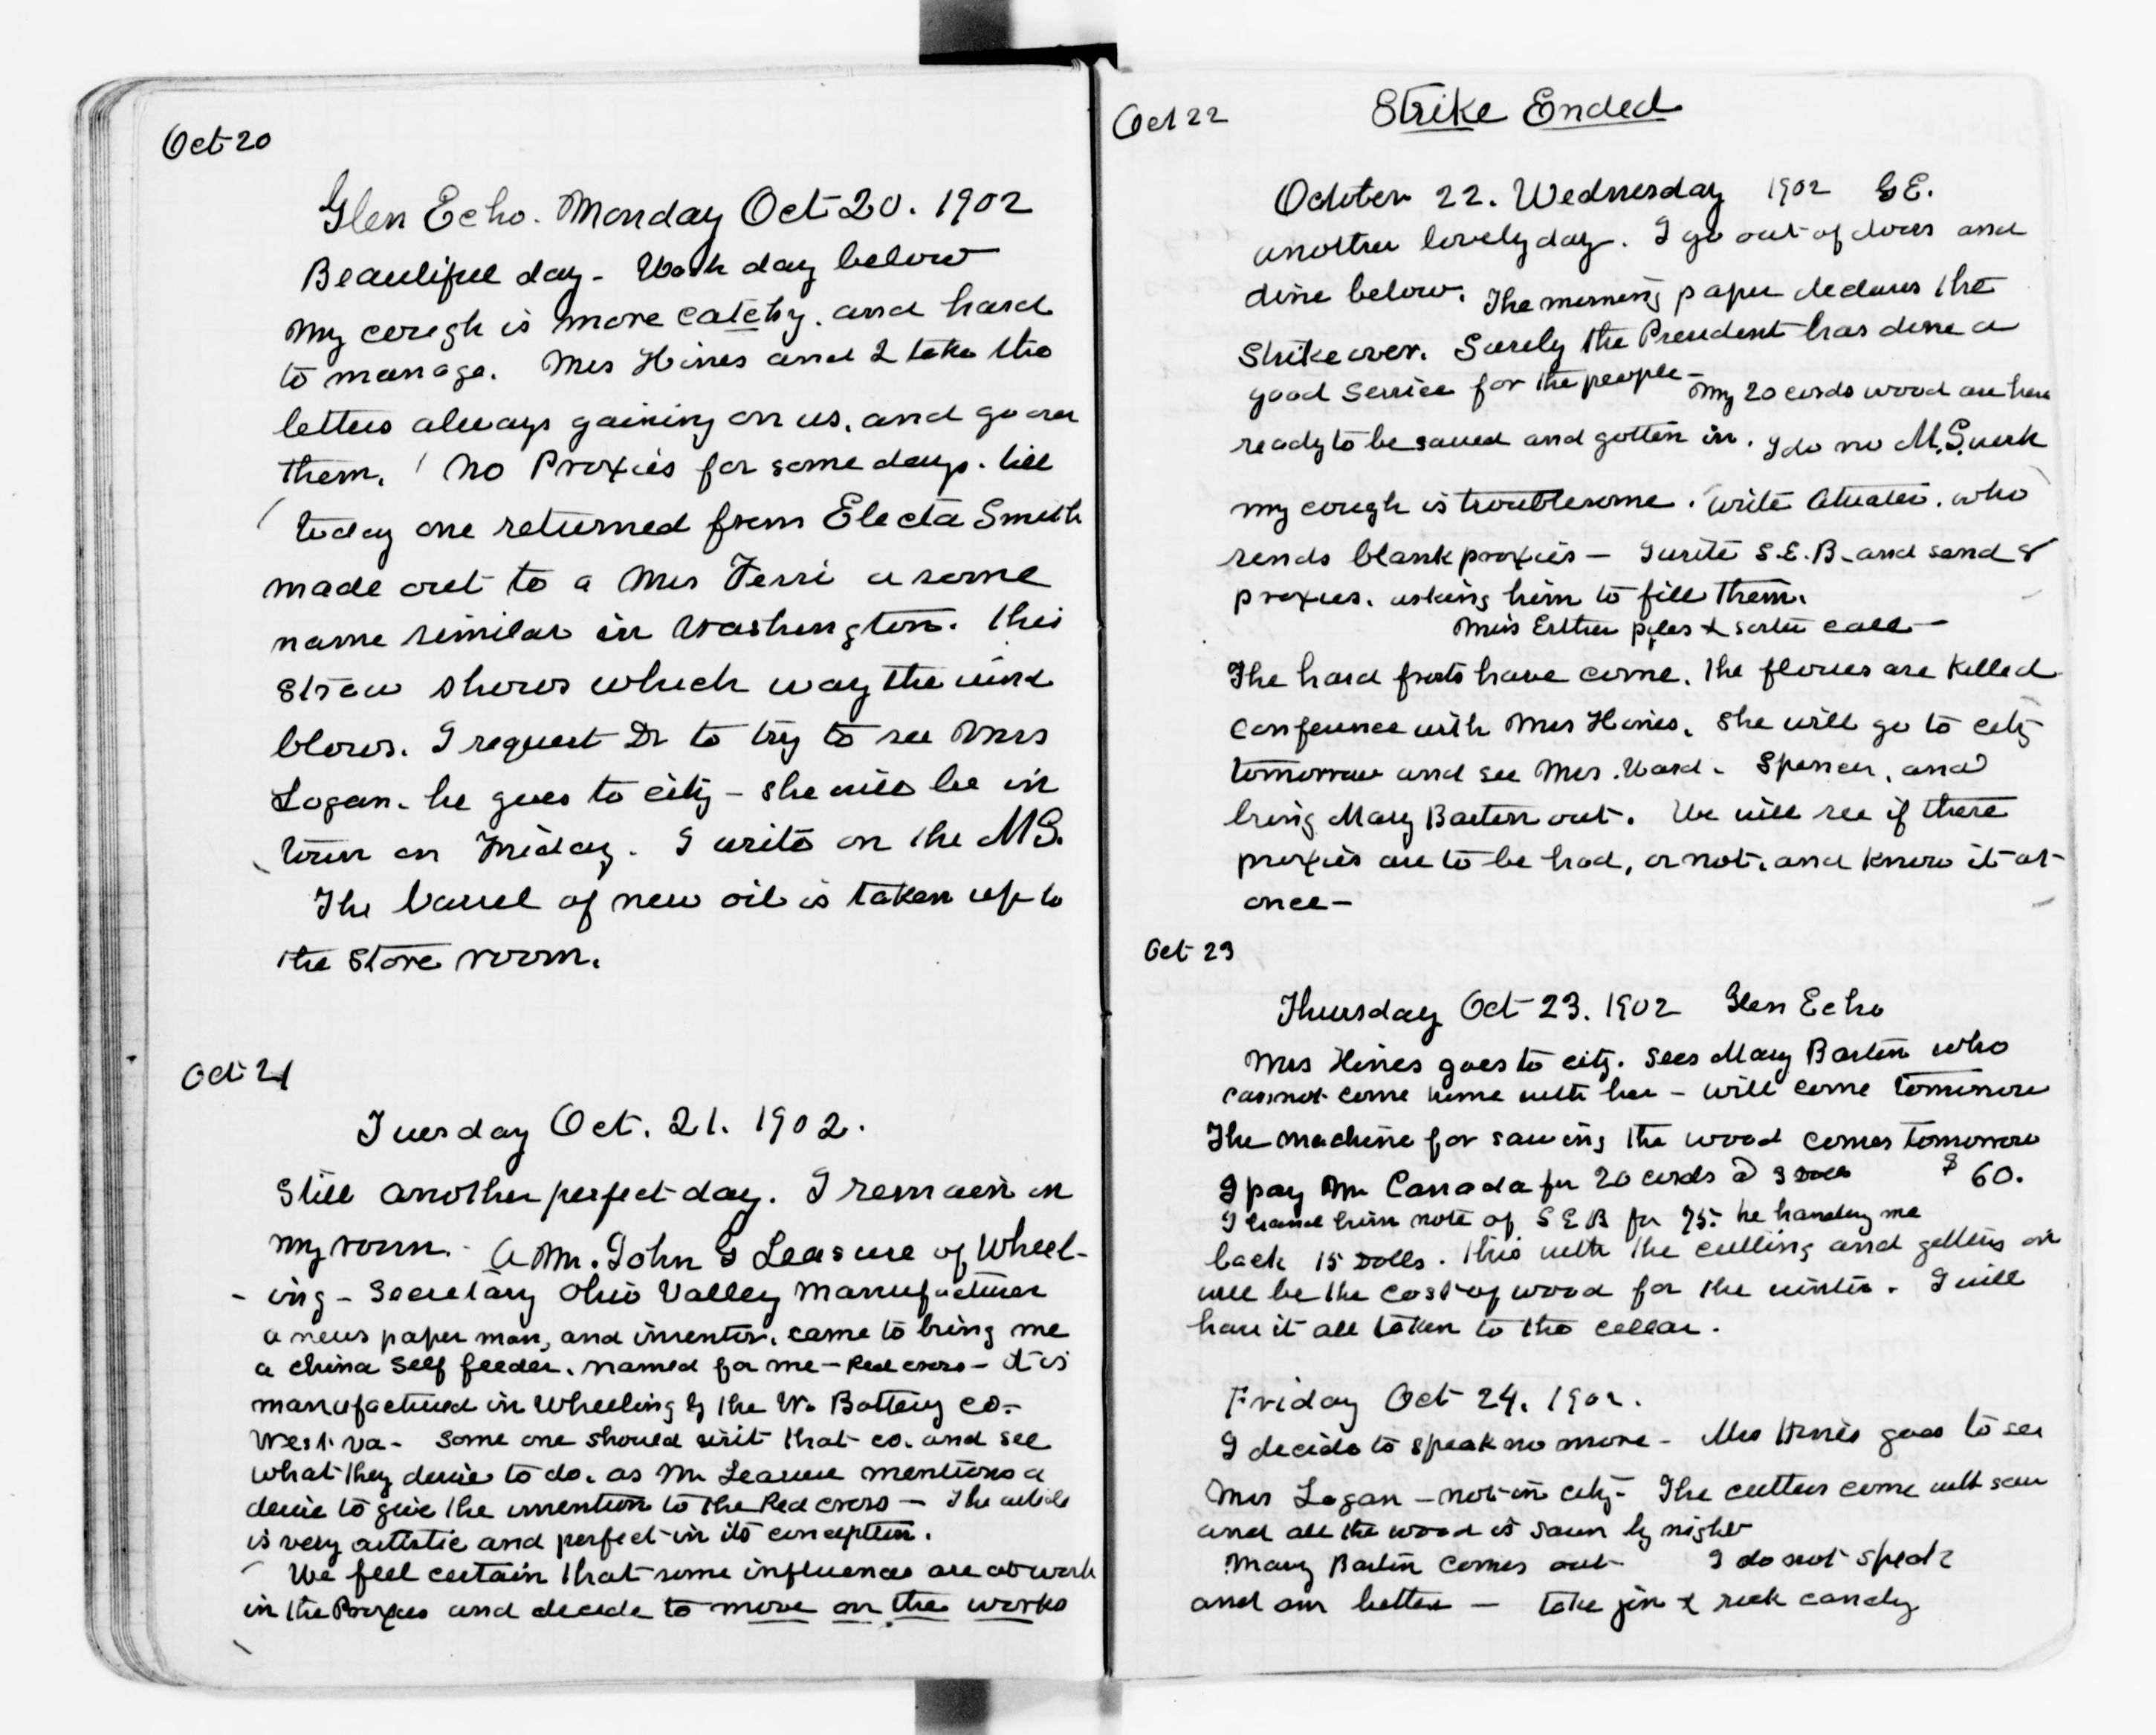 Oct 20
Glen Echo. Monday Oct 20. 1902
Beautiful day - Wash day below
My cough is more catchy. and hard
to manage. Mrs Hines and I take the
letters always gaining on us, and go over
them. No Proxies for some days. till
today one returned from Electa Smith
made out to a Mrs Ferri a some
name similar in Washington. This
straw shows which way the wind
blows. I request Dr to try to see Mrs
Logan. he goes to city - she will be in
town on Friday. I write on the MS.
The barrel of new oil is taken up to
the store room.
Oct 21
Tuesday Oct. 21. 1902.
Still another perfect day. I remain in
my room. A Mr. John G Leasure of Wheel-
- ing - Secretary Ohio Valley Manufacturer
a news paper man, and inventor, came to bring me
a china self feeder. named for me - Red cross - It is
manufactured in Wheeling by the W. Pottery co.-
West va - Some one should visit that co. and see
what they desire to do. as Mr Leasure mentions a
desire to give the invention to the Red cross - The article
is very artistic and perfect in its conception.
We feel certain that some influences are at work
in the Proxies and decide to move on the works
Oct 22
Strike Ended
October 22. Wednesday 1902 G E.
another lovely day. I go out of doors and
dine below. The morning paper declares the
Strike over. Surely the President has done a
good service for the people - My 20 cords wood are here
ready to be sawed and gotten in. I do no M.S. work
my cough is troublesome. Write Atwater. who
sends blank proxies - I write S.E.B. and send 8
proxies. asking him to fill them.
Miss Esther Pyles & sister call -
The hard frosts have come. The flowers are killed
Conference with Mrs Hines. She will go to city
tomorrow and see Mrs. Ward. Spencer, and
bring Mary Barton out. We will see if there
proxies are to be had, or not. and know it at
once -
Oct 23
Thursday Oct 23. 1902 Glen Echo
Mrs Hines goes to city. Sees Mary Barton who
cannot come home with her - will come tomorrow
The machine for sawing the wood comes tomorrow
I pay Mr Canada for 20 cords @ 3 Dolls $ 60.
I hand him note of S E B for 75. he handing me
back 15 Dolls. This with the cutting and getting in
will be the cost of wood for the winter. I will
have it all taken to the cellar.
Friday Oct 24. 1902.
I decide to speak no more - Mrs Hines goes to see
Mrs Logan - not in city - The cutters come with saw
and all the wood is sawn by night
Mary Barton comes out I do not speak
and am better - take gin & rock candy